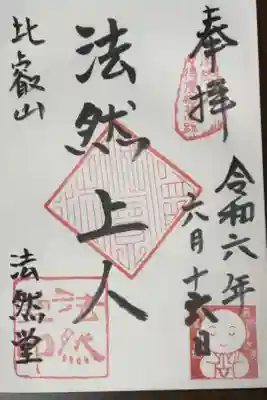 奉拝
令和六年
六月十六日
法然上人
比叡山
法然堂